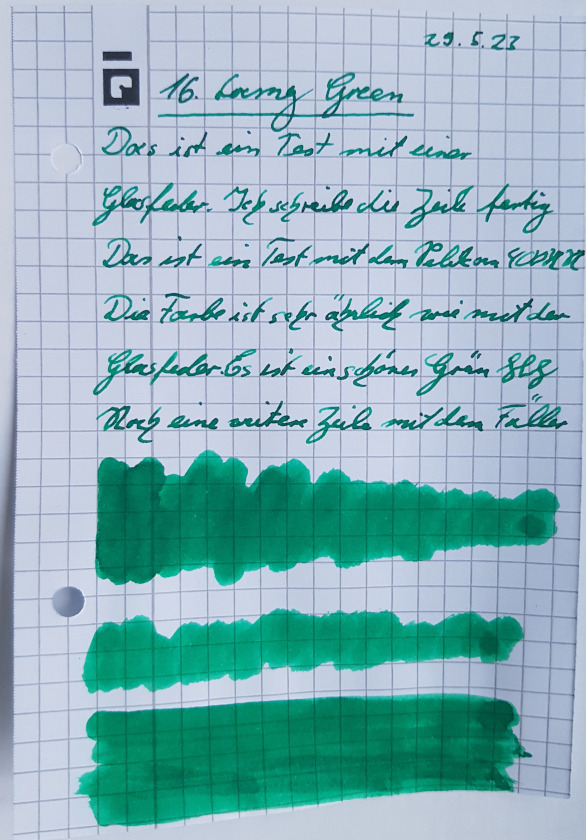 29.5.23
16. Lamy Green
Das ist ein Test mit einer
Glasfeder. Ich schreibe die Zeile fertig
Das ist ein Test mit dem Pelikan
Die Farbe ist sehr ähnlich wie mit der
Glasfeder. Es ist ein schönes Grün
Noch eine weitere Zeile mit dem Füller